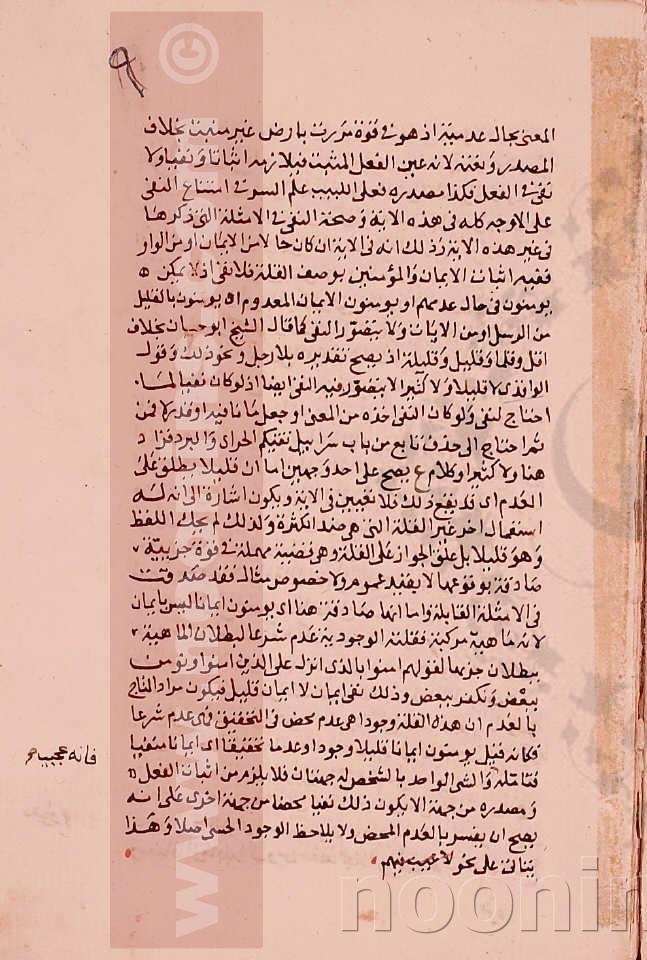 ٩
المعنى بحال عدمية اذ هو فى قوة مررت بارض غير منبت بخلاف
المصدر ونعته لانه عين الفعل المثبت فيلازمه اثباتا ونفيا ولا
نفى فى الفعل فكذا مصدره فعلى اللبيب علم السر فى امتناع النفى
على الاوجه كله فى هذه الاية وصحة النفى فى الامثلة التى ذكرها
فى غير هذه الاية وذلك انه فى الاية ان كان حالا من الايمان او من الواو
ففيه اثبات الايمان والمؤمنين بوصف القلة فلا نفى اذ لا يمكن
يومنون فى حال عدمهم او يومنون الايمان المعدوم او يومنون بالقليل
من الرسل او من الايات ولا يتصور النفى كما قال الشيخ ابو حيان بخلاف
اقل وقلما وقليل وقليلة اذ يصح تقديره بلا رجل ونحو ذلك وقول
الواقدى لا قليلا ولا كثيرا لا يتصور فيه النفى ايضا اذ لو كان نفيا لما
احتاج لنفى ولو كان النفى اخذه من المعنى او جعل ما نافية او قدر لا فمن
ثم احتاج الى حذف تابع من باب سرابيل تقيكم الحر اى والبرد فزاد
هنا ولا كثيرا وكلام ع يصح على احد وجهين اما ان قليلا يطلق على
العدم اى قد يقع ذلك فلا تعيين فى الاية ويكون اشارة الى انه له
استعمال اخر غير القلة التى هى ضد الكثرة ولذلك لم يحك اللفظ
وهو قليلا بل علق الجواز على القلة وهى قضية مهملة فى قوة جزيية
صادقة بوقوعها لا يفيد عموم ولا خصوص مثاله فقد صدقت
فى الامثلة القابلة واما انها صادقة هنا اى يومنون ايمانا ليس بايمان
لانه ماهية مركبة فقلته الوجودية عدم شرعا لبطلان الماهية
ببطلان جزيها لقولهم امنوا بالذى انزل على الذين امنوا ونومن
ببعض ونكفر ببعض وذلك نفى ايمان لا ايمان قليل فيكون مراد القائل
بالعدم ان هذه القلة وجودا هى عدم محض فى التحقيق وفى عدم شرعا
فكانه قيل يومنون ايمانا قليلا وجودا وعدما تحقيقا اى ايمانا منفيا
فتامله والشى الواحد بالشخص له جهتان فلا يلزم من اثبات الفعل
ومصدره من جهة الا يكون ذلك نفيا محضا من جهة اخرى على انه
يصح ان يفسر بالعدم المحض ولا يلاحظ الوجود الحسى اصلا وهذا
يتاتى على نحو لا عيب فيهم
فانه عجيب
www.
©
noonin